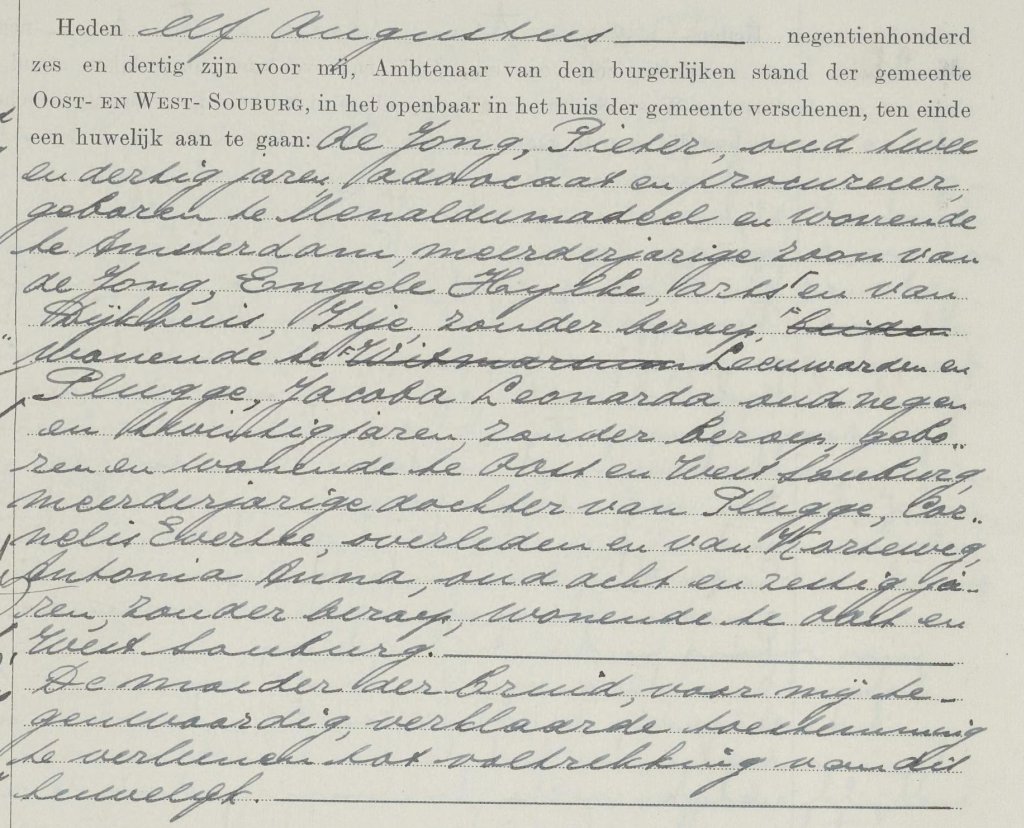 Heden elf Augustus negentienhonderd
zes en dertig zijn voor mij, Ambtenaar van den burgerlijken stand der gemeente
OOST- EN WEST- SOUBURG, in het openbaar in het huis der gemeente verschenen, ten einde
een huwelijk aan te gaan: de Jong, Pieter, oud twee
en dertig jaren, advocaat en procureur,
geboren te Menaldumadeel en wonende
te Amsterdam, meerderjarige zoon van
de Jong, Engele Hylke, arts en van
Dijkhuis, Itje, zonder beroep, beiden
wonende te Witmarsum Leeuwarden en
Plugge, Jacoba Leonarda, oud negen
en twintig jaren, zonder beroep, gebo„
ren en wonende te Oost en West Souburg,
meerderjarige dochter van Plugge, Cor„
nelis Evertse, overleden en van Korteweg,
Antonia Anna, oud acht en zestig ja-
ren, zonder beroep, wonende te Oost en
West Souburg.
De moeder der bruid, voor mij te-
genwoordig, verklaarde toestemming
te verleenen tot voltrekking van dit
huwelijk.